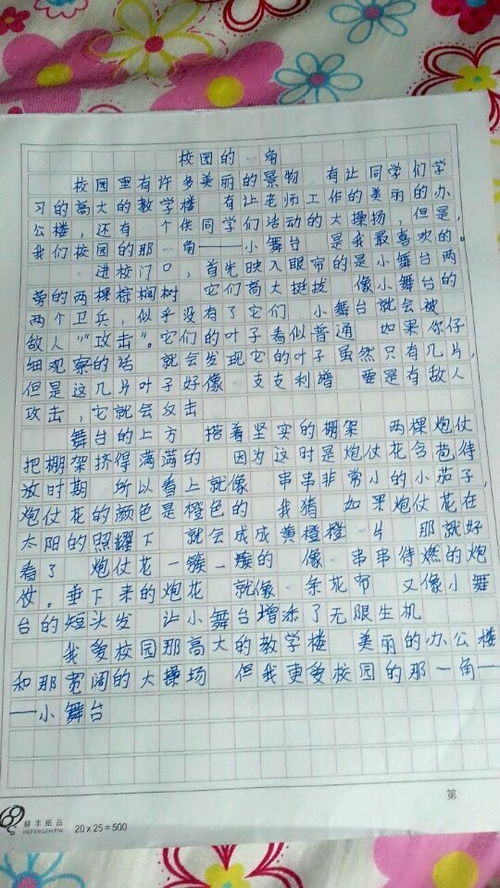 校园的一角
校园里有许多美丽的景物 有让同学们学
习的高大的教学楼 有让老师工作的美丽的办
公楼，还有 个供同学们活动的大操场，但是，
我们校园的那一角——小舞台 是我最喜欢的。
进校门口，首先映入眼帘的是小舞台两
旁的两棵棕榈树 它们高大挺拔 像小舞台的
两个卫兵，似乎没有了它们 小舞台就会被
敌人“攻击”。它们的叶子看似普通 如果你仔
细观察的话 就会发现它的叶子虽然只有几片，
但是这几片叶子好像 支支利箭 要是有敌人
攻击，它就会反击
舞台的上方 搭着坚实的棚架 两棵炮仗
把棚架挤得满满的 因为这时是炮仗花含苞待
放时期 所以看上就像 串串非常小的小茄子，
炮仗花的颜色是橙色的 我猜 如果炮仗花在
太阳的照耀下 就会成成黄橙橙一片 那就好
看了 炮仗花一簇一簇的 像一串串待燃的炮
仗。垂下来的炮花 就像一条花布 又像小舞
台的短头发 让小舞台增添了无限生机
我爱校园那高大的教学楼 美丽的办公楼
和那宽阔的大操场 但我更爱校园的那一角—
—小舞台
第
赫丰纸品
HEFENGZHIPIN
20×25=500